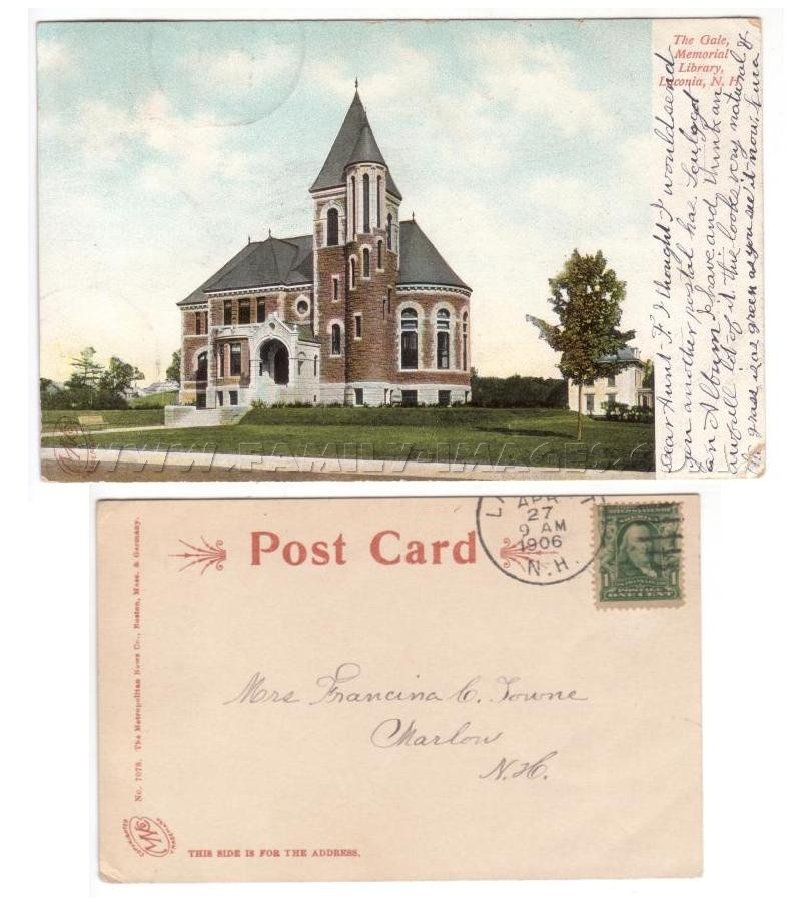 The Gale,
Memorial
Library,
Laconia, N. H.
Dear Aunt F. I thought I would send
you another postal has
an Album I have and think an
awfull lot of it this looks very natural &
grass is as green as you see it now
WWW.FAMILY-IMAGES.COM
Post Card
APR
27
9 AM
1906
N.H.
UNITED STATES OF AMERICA
POSTAGE
1 ONE CENT 1
Mrs Francina C. Towne
Marlow
N.H.
No. 7078. The Metropolitan News Co., Boston, Mass. & Germany.
THIS SIDE IS FOR THE ADDRESS.